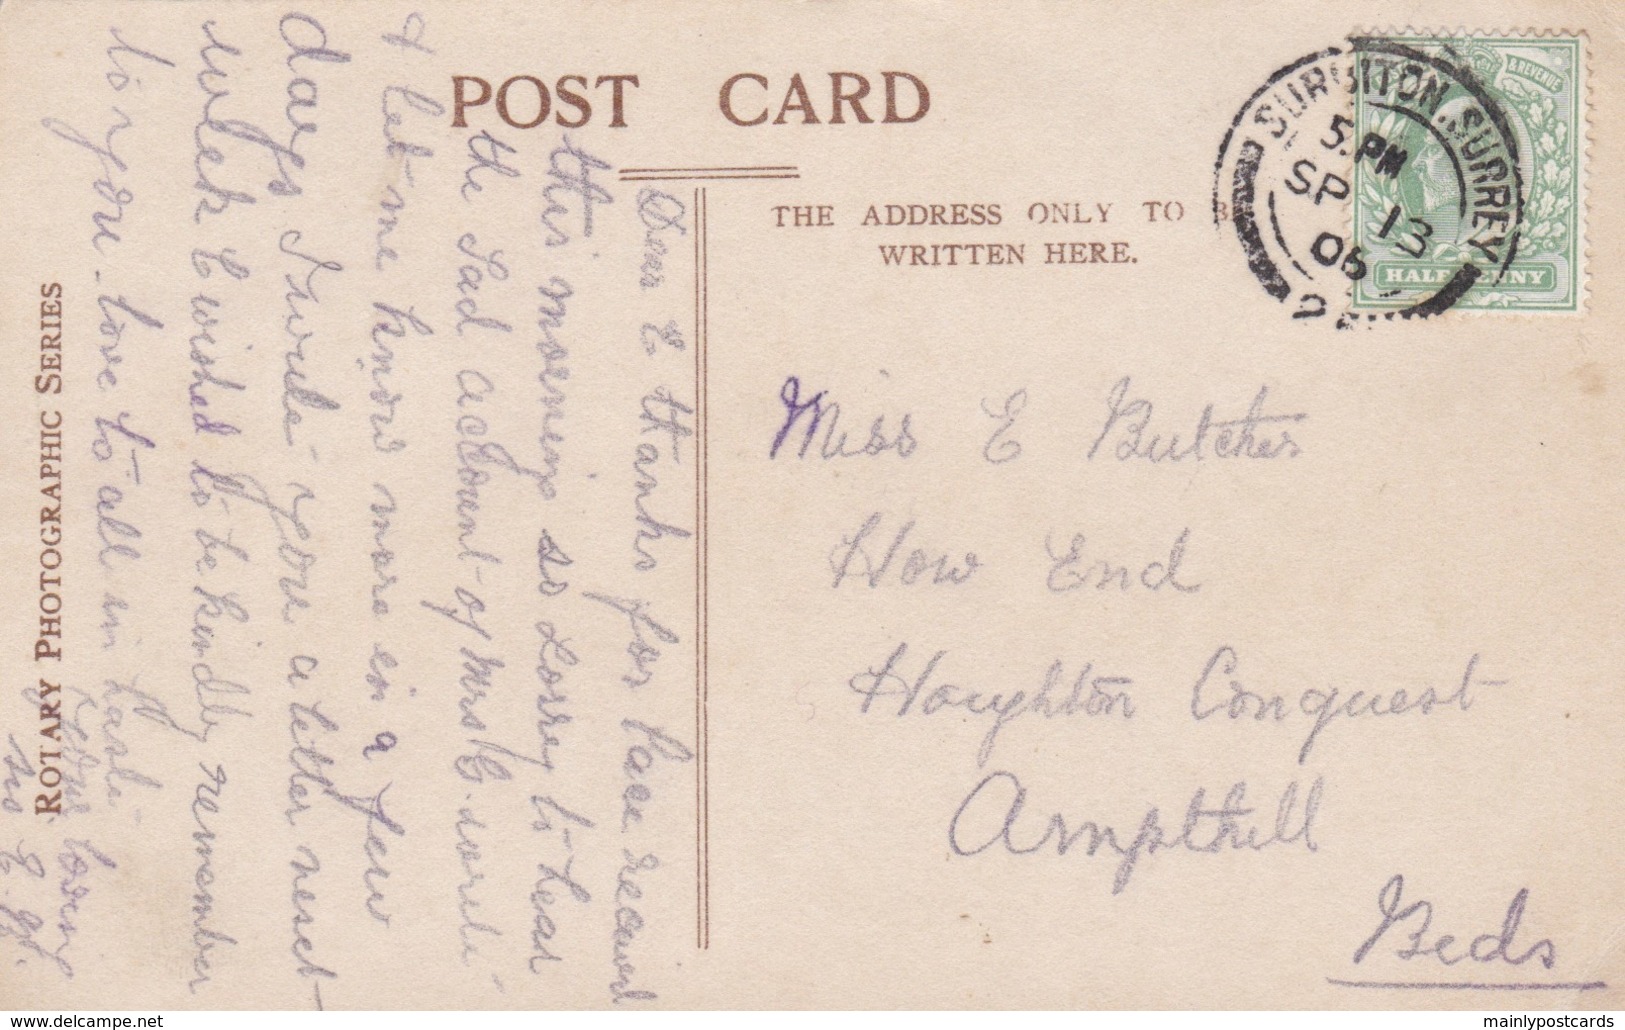 POST CARD
THE ADDRESS ONLY TO B
WRITTEN HERE.
& REVENUE
HALFPENNY
SURBITON. SURREY
5. PM
SP 13
06
Miss E Butcher
How End
Houghton Conquest
Ampthill
Beds
Dear E thanks for
this morning so sorry to hear
the sad account of Mrs C. write
& let me know more in a few
days I write you a letter next
week E wished to be kindly remember
to you. love to all in haste
Your loving
sis E.
ROTARY PHOTOGRAPHIC SERIES
mainlypostcards
www.delcampe.net